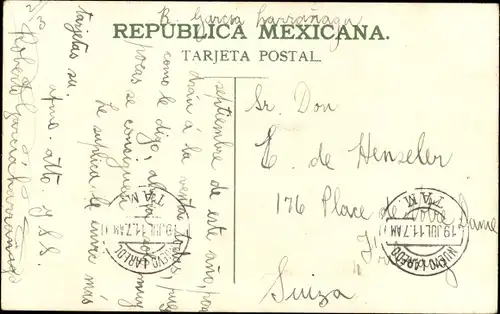 R. García Larrañaga
REPUBLICA MEXICANA.
TARJETA POSTAL.
septiembre de este año, pon
drán á la venta todas, pues
como le digo, ahora
pocas se consiguen muy
Le suplico me envie más
tarjetas su
afmo. atto. y S.S.
Roberto García Larrañaga
Sr. Don
E. de Henseler
176 Place de Notre Dame
Suiza
NUEVO LAREDO
19 JUL 11. 7 AM
TAM.
NUEVO LAREDO
19 JUL 11. 7 AM
TAM.